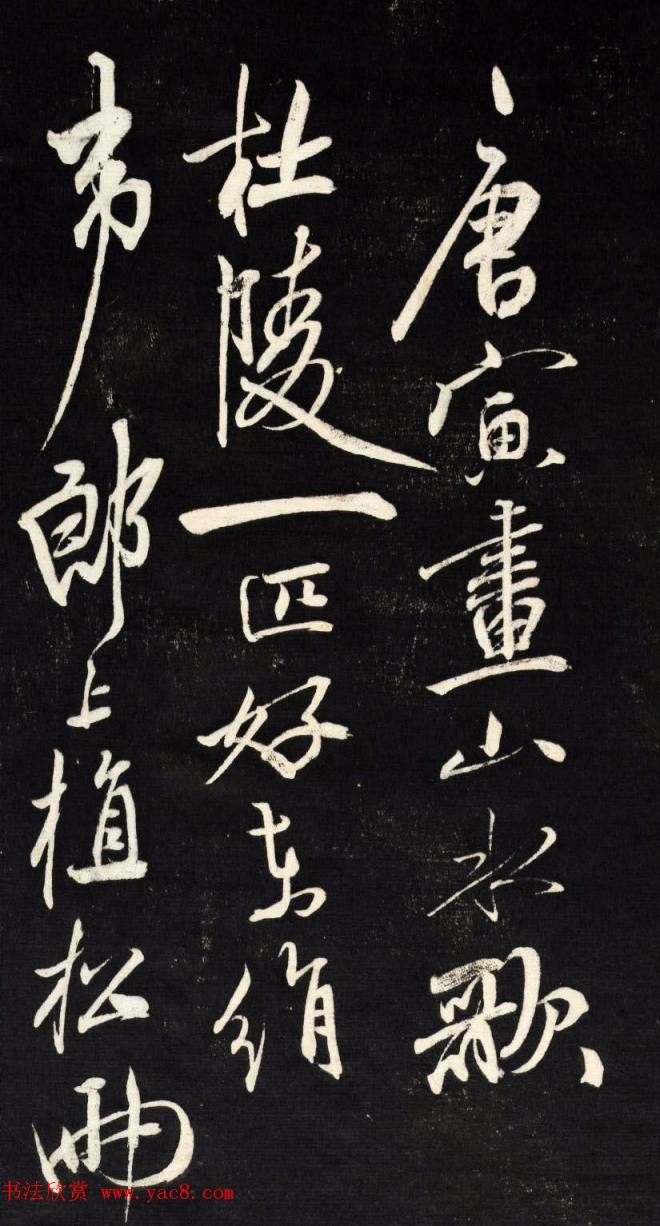 唐寅畫山水歌
杜陵一匹好東絹
韋郎上植松兩
书法欣赏 www.yac8.com